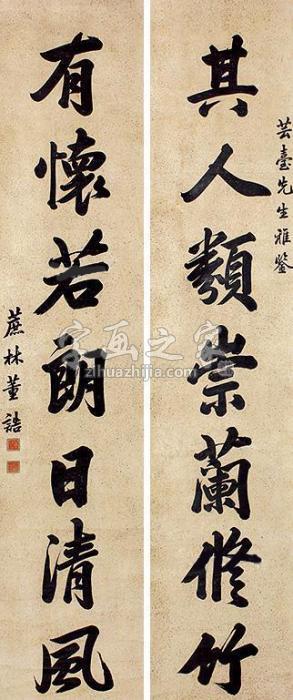 芸臺先生雅鑒
其人類崇蘭修竹
有懷若朗日清風
蔗林董誥
字画之家
zihuazhijia.com